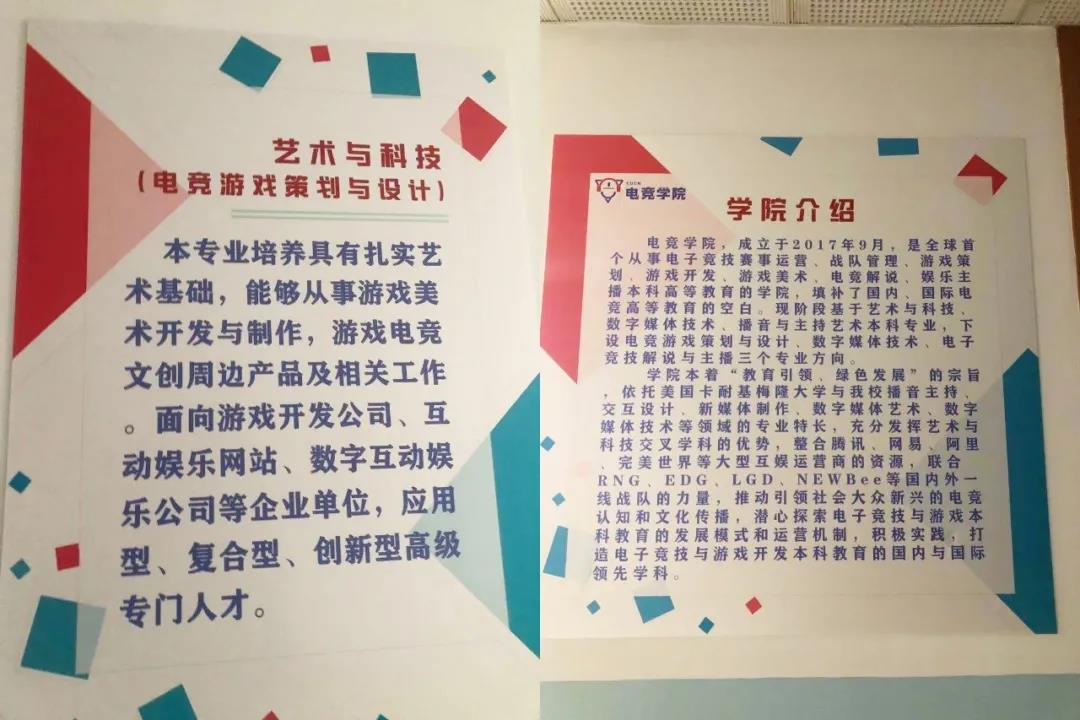 艺术与科技
(电竞游戏策划与设计)
本专业培养具有扎实艺
术基础，能够从事游戏美
术开发与制作，游戏电竞
文创周边产品及相关工作
。面向游戏开发公司、互
动娱乐网站、数字互动娱
乐公司等企业单位，应用
型、复合型、创新型高级
专门人才。
电竞学院
学院介绍
电竞学院，成立于2017年9月，是全球首
个从事电子竞技赛事运营、战队管理、游戏策
划、游戏开发、游戏美术、电竞解说、娱乐主
播本科高等教育的学院，填补了国内、国际电
竞高等教育的空白。现阶段基于艺术与科技、
数字媒体技术、播音与主持艺术本科专业，下
设电竞游戏策划与设计、数字媒体技术、电子
竞技解说与主播三个专业方向。
学院本着“教育引领、绿色发展”的宗旨
，依托美国卡耐基梅隆大学与我校播音主持、
交互设计、新媒体制作、数字媒体艺术、数字
媒体技术等领域的专业特长，充分发挥艺术与
科技交叉学科的优势，整合腾讯、网易、阿里
、完美世界等大型互娱运营商的资源，联合
RNG、EDG、LGD、NEWBee等国内外一
线战队的力量，推动引领社会大众新兴的电竞
认知和文化传播，潜心探索电子竞技与游戏本
科教育的发展模式和运营机制，积极实践，打
造电子竞技与游戏开发本科教育的国内与国际
领先学科。